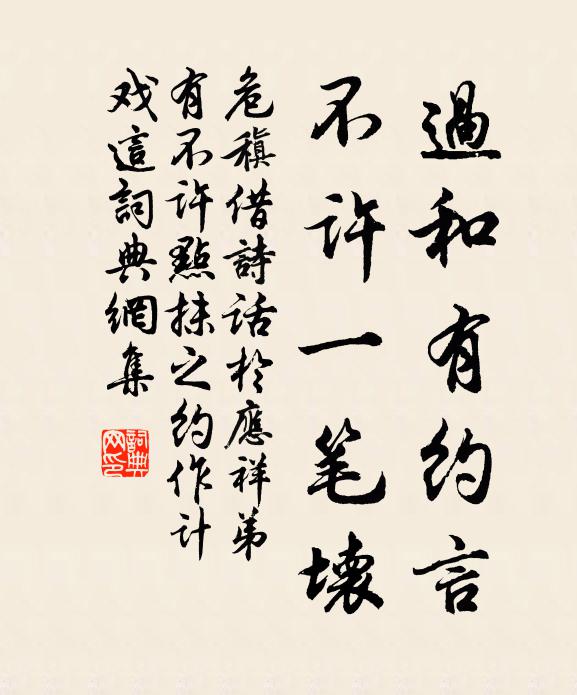 過和有約言
不許一笔壞
危稹借詩話於應祥弟
有不許點抹之約作計
戏這詞典網集
詞典网印